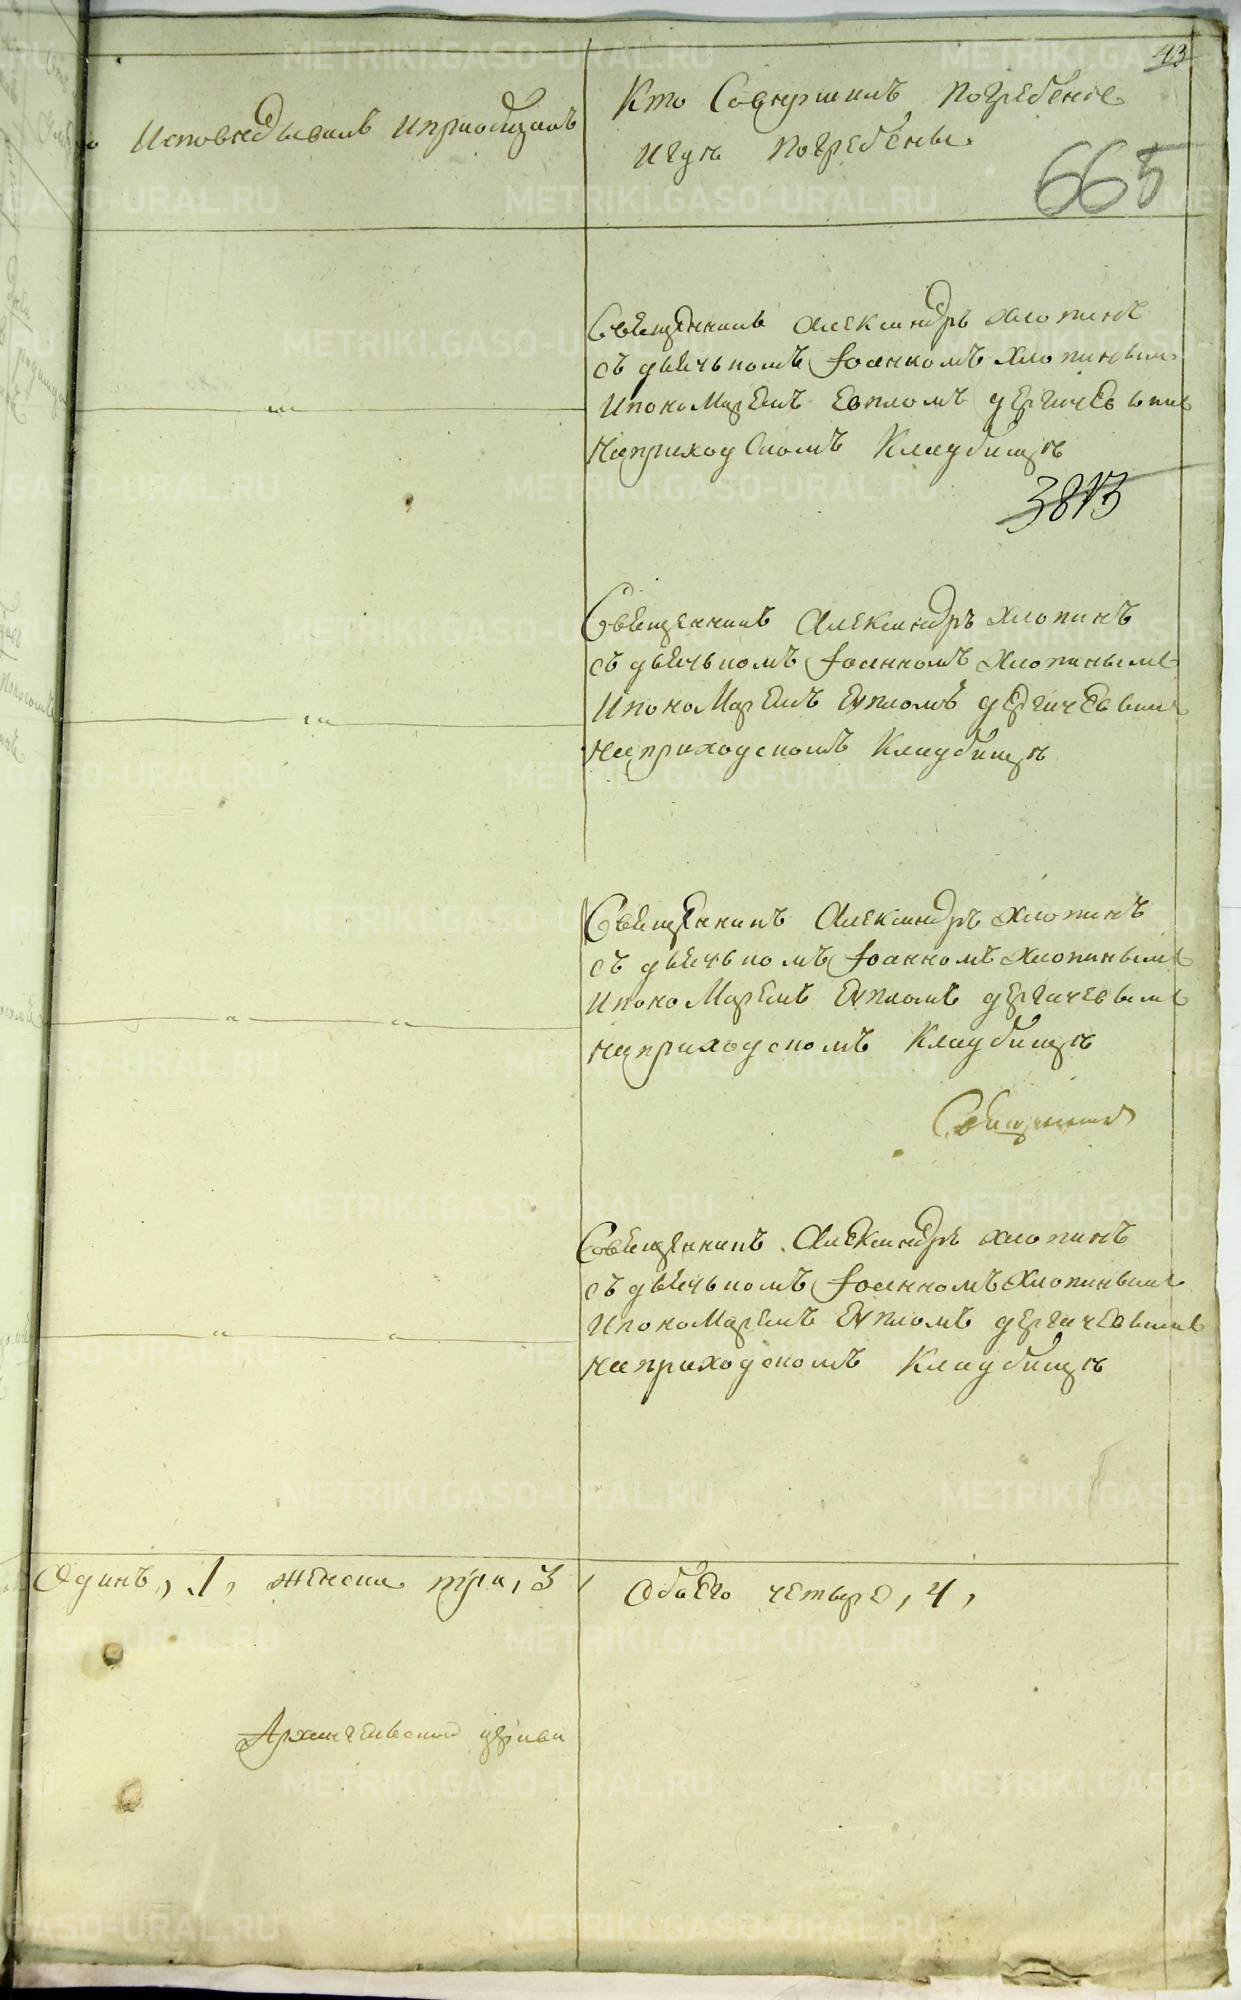 43
Исповѣдывалъ ипріобщалъ
Кто Совершилъ погребеніе
игдѣ погребены.
665
Священникъ Александръ Хлопинъ
съ дьячькомъ Іоанномъ Хлопинымъ
Ипономаремъ Евпломъ дергачевымъ
наприходскомъ Кладбищѣ
3813
Священникъ Александръ Хлопинъ
съ дьячькомъ Іоанномъ Хлопинымъ
Ипономаремъ Еѵпломъ дергачевымъ
наприходскомъ Кладбищѣ
Священникъ Александръ Хлопинъ
съ дьячькомъ Іоанномъ Хлопинымъ
Ипономаремъ Еѵпломъ дергачевымъ
наприходскомъ Кладбищѣ
Священникъ
Священникъ Александръ Хлопинъ
съ дьячькомъ Іоанномъ Хлопинымъ
Ипономаремъ Еѵпломъ дергачевымъ
наприходскомъ Кладбищѣ
Одинъ, 1, женска три, 3, Обоего четыре, 4,
Архангельской церкви